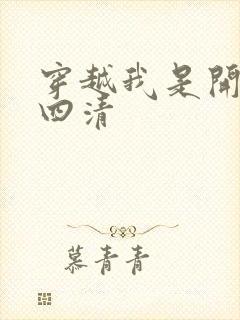 穿越我是開
四清
慕青青